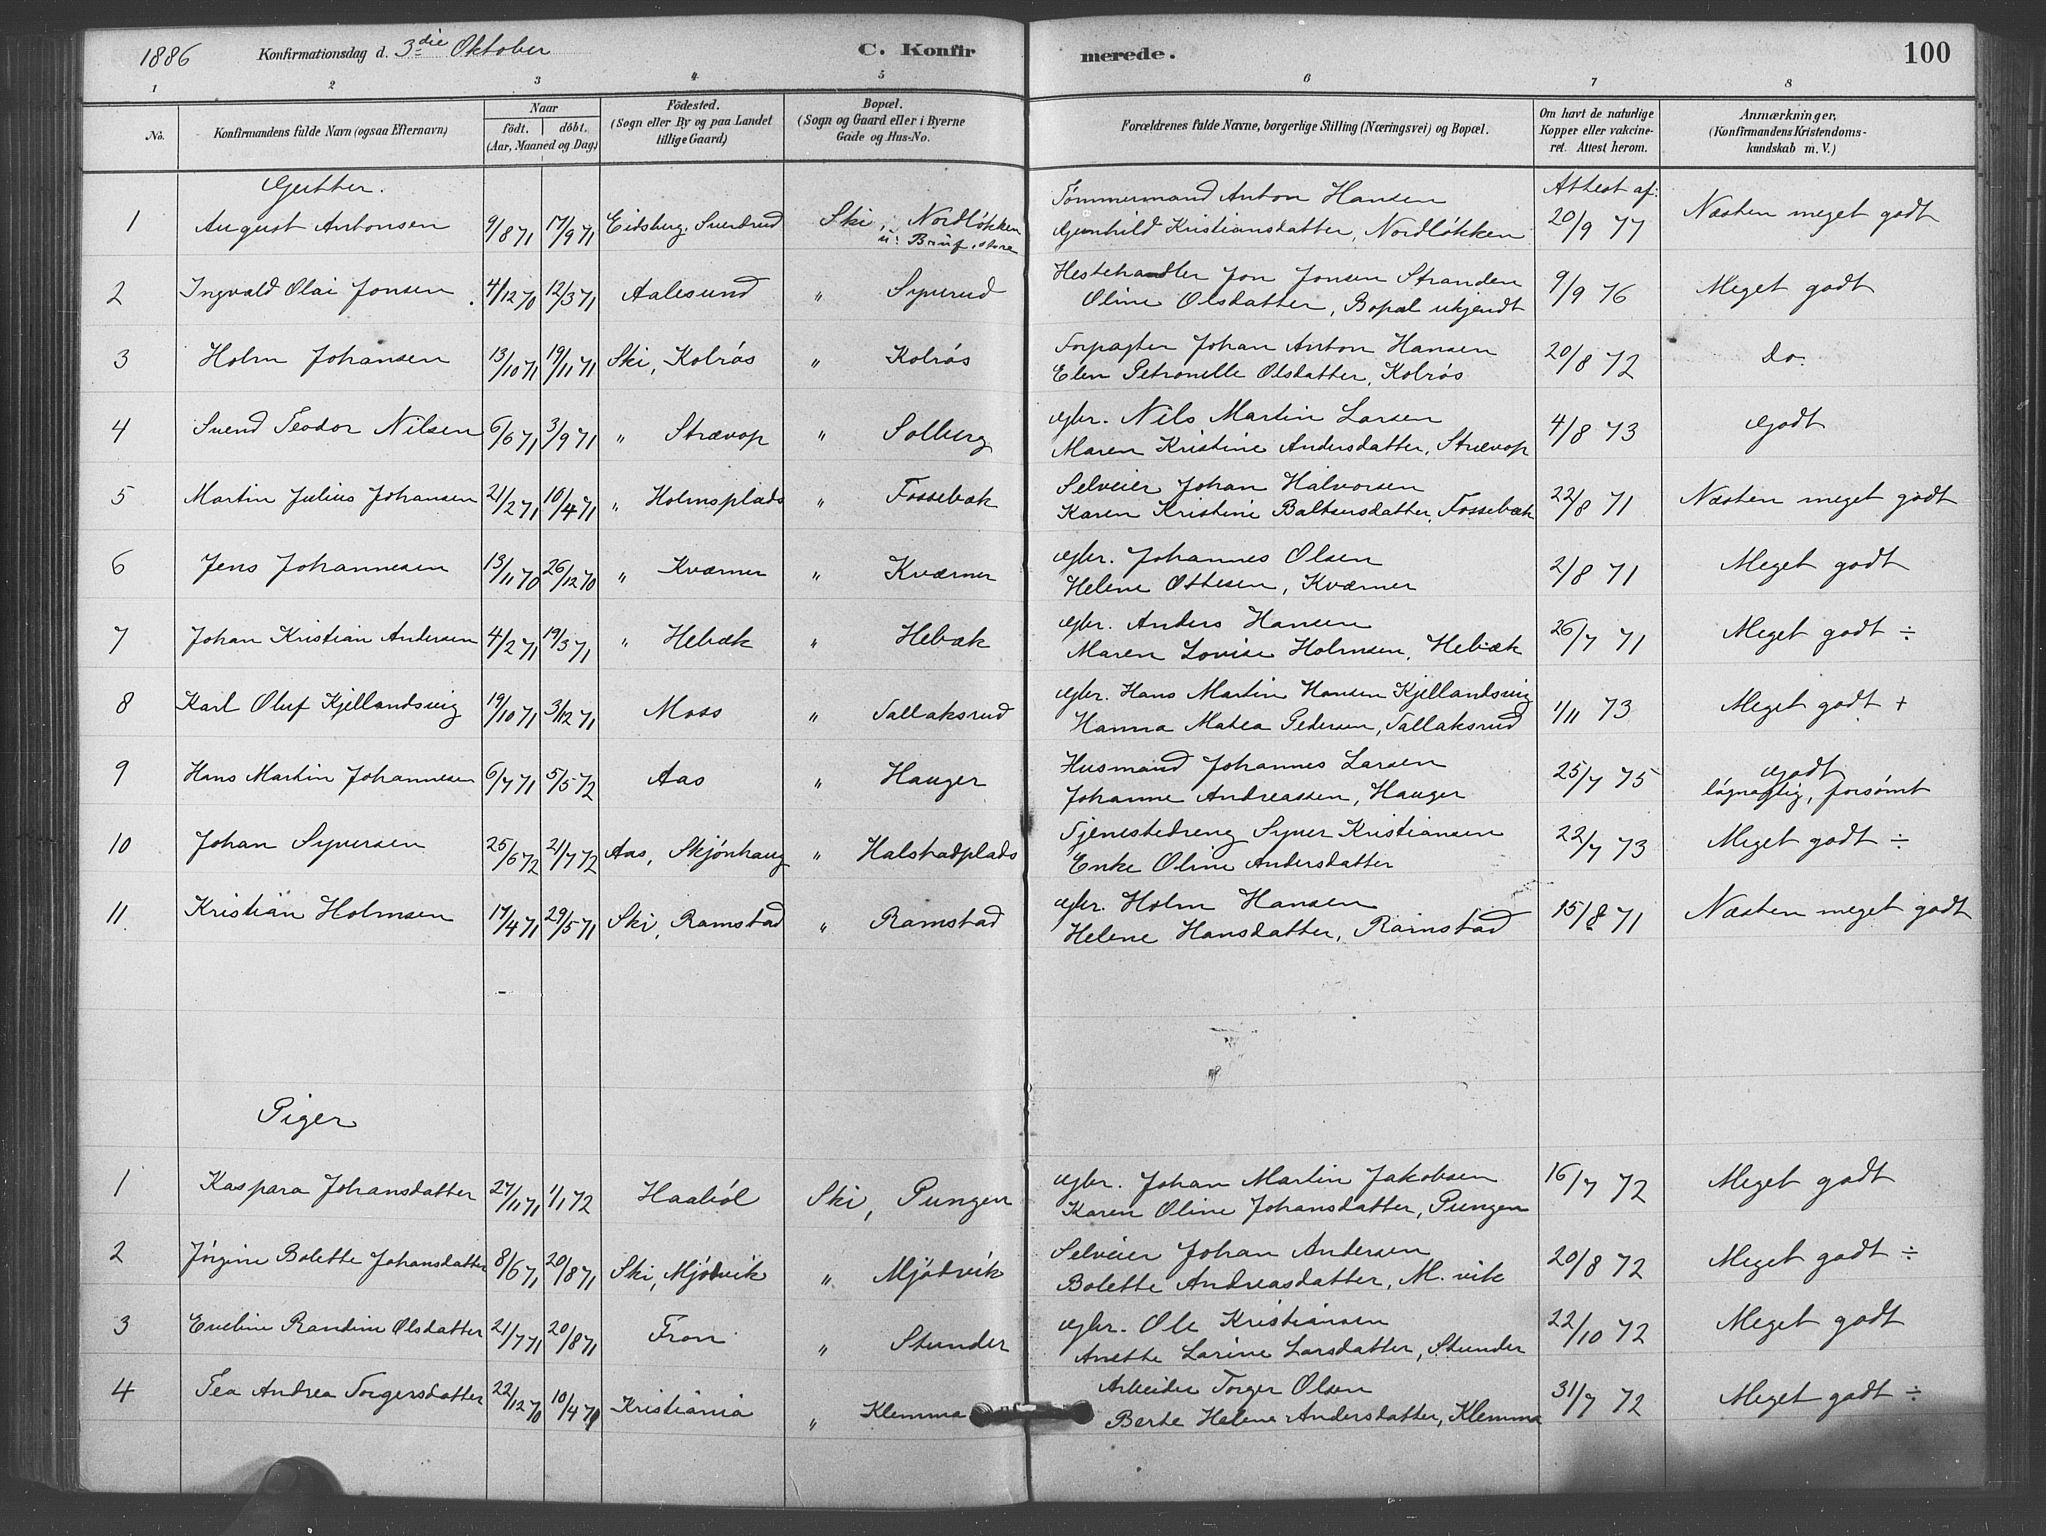 1886 Konfirmationsdag d. 3die Oktober C. Konfirmerede. 100
1 2 3 4 5 6 7 8
No. Konfirmandens fulde Navn (ogsaa Efternavn) Naar födt. döbt. (Aar, Maaned og Dag) Födested. (Sogn eller By og paa Landet tillige Gaard) Bopæl. (Sogn og Gaard eller i Byerne Gade og Hus-No. Forældrenes fulde Navne, borgerlige Stilling (Næringsvei) og Bopæl. Om havt de naturlige Kopper eller vakcineret. Attest herom. Anmærkninger, (Konfirmandens Kristendomskundskab m. V.)
Gutter. Attest af:
1 August Antonsen 9/8 71 17/9 71 Eidsberg, Sverdrud Ski, Nordløkken Tømmermand Anton Hansen 20/9 77 Næsten meget godt
Gunhild Kristiansdatter, Nordløkken
2 Ingvald Olai Jonsen 4/12 70 12/3 71 Aalesund " Syverud Hestehandler Jon Jonsen Stranden 9/9 76 Meget godt
Oline Olsdatter, Bopæl ukjendt
3 Holm Johansen 13/10 71 19/11 71 Ski, Kolrøs " Kolrøs Forpagter Johan Anton Hansen 20/8 72 Do.
Elen Petronelle Olsdatter, Kolrøs
4 Svend Teodor Nilsen 6/6 71 3/9 71 " Strævop " Solberg Gbr. Nils Martin Larsen 4/8 73 Godt
Maren Kristine Andersdatter, Strævop
5 Martin Julius Johansen 21/2 71 16/4 71 " Holmsplads " Fossebæk Selveier Johan Halvorsen 22/8 71 Næsten meget godt
Karen Kristine Baltsersdatter, Fossebæk
6 Jens Johannesen 13/11 70 26/12 70 " Kværner " Kværner Gbr. Johannes Olsen 2/8 71 Meget godt
Helene Ottesen, Kværner
7 Johan Kristian Andersen 4/2 71 19/3 71 " Hebæk " Hebæk Gbr. Anders Hansen 26/7 71 Meget godt ÷
Maren Lovise Holmsen, Hebæk
8 Karl Oluf Kjellandsvig 19/10 71 3/12 71 Moss " Tallaksrud Gbr. Hans Martin Hansen Kjellandsvig 1/11 73 Meget godt +
Hanna Matea Pedersen, Tallaksrud
9 Hans Martin Johannesen 6/7 71 5/5 72 Aas " Hauger Husmand Johannes Larsen 25/7 75 Godt
Johanne Andreassen, Hauger løgnagtig, forsømt
10 Johan Syversen 25/6 72 21/7 72 Aas, Skjønhaug " Halstadplads Tjenestedreng Syver Kristiansen 22/7 73 Meget godt ÷
Enke Oline Andersdatter
11. Kristian Holmsen 17/4 71 29/5 71 Ski, Ramstad " Ramstad Gbr. Holm Hansen 15/8 71 Næsten meget godt
Helene Hansdatter, Ramstad
Piger
1 Kaspara Johansdatter 27/11 71 1/1 72 Haabøl Ski, Pungen Gbr. Johan Martin Jakobsen 16/7 72 Meget godt
Karen Oline Johansdatter, Pungen
2 Jørgine Bolette Johansdatter 8/6 71 20/8 71 Ski, Mjødvik " Mjødvik Selveier Johan Andersen 20/8 72 Meget godt ÷
Bolette Andreasdatter, M. vik
3 Eveline Randine Olsdatter 21/7 71 20/8 71 Fron " Stunder Gbr. Ole Kristiansen 22/10 72 Meget godt
Anette Larine Larsdatter, Stunder
4 Tea Andrea Torgersdatter 22/12 70 10/4 71 Kristiania " Klemma Arbeider Torger Olsen 31/7 72 Meget godt ÷
Berte Helene Andersdatter, Klemma